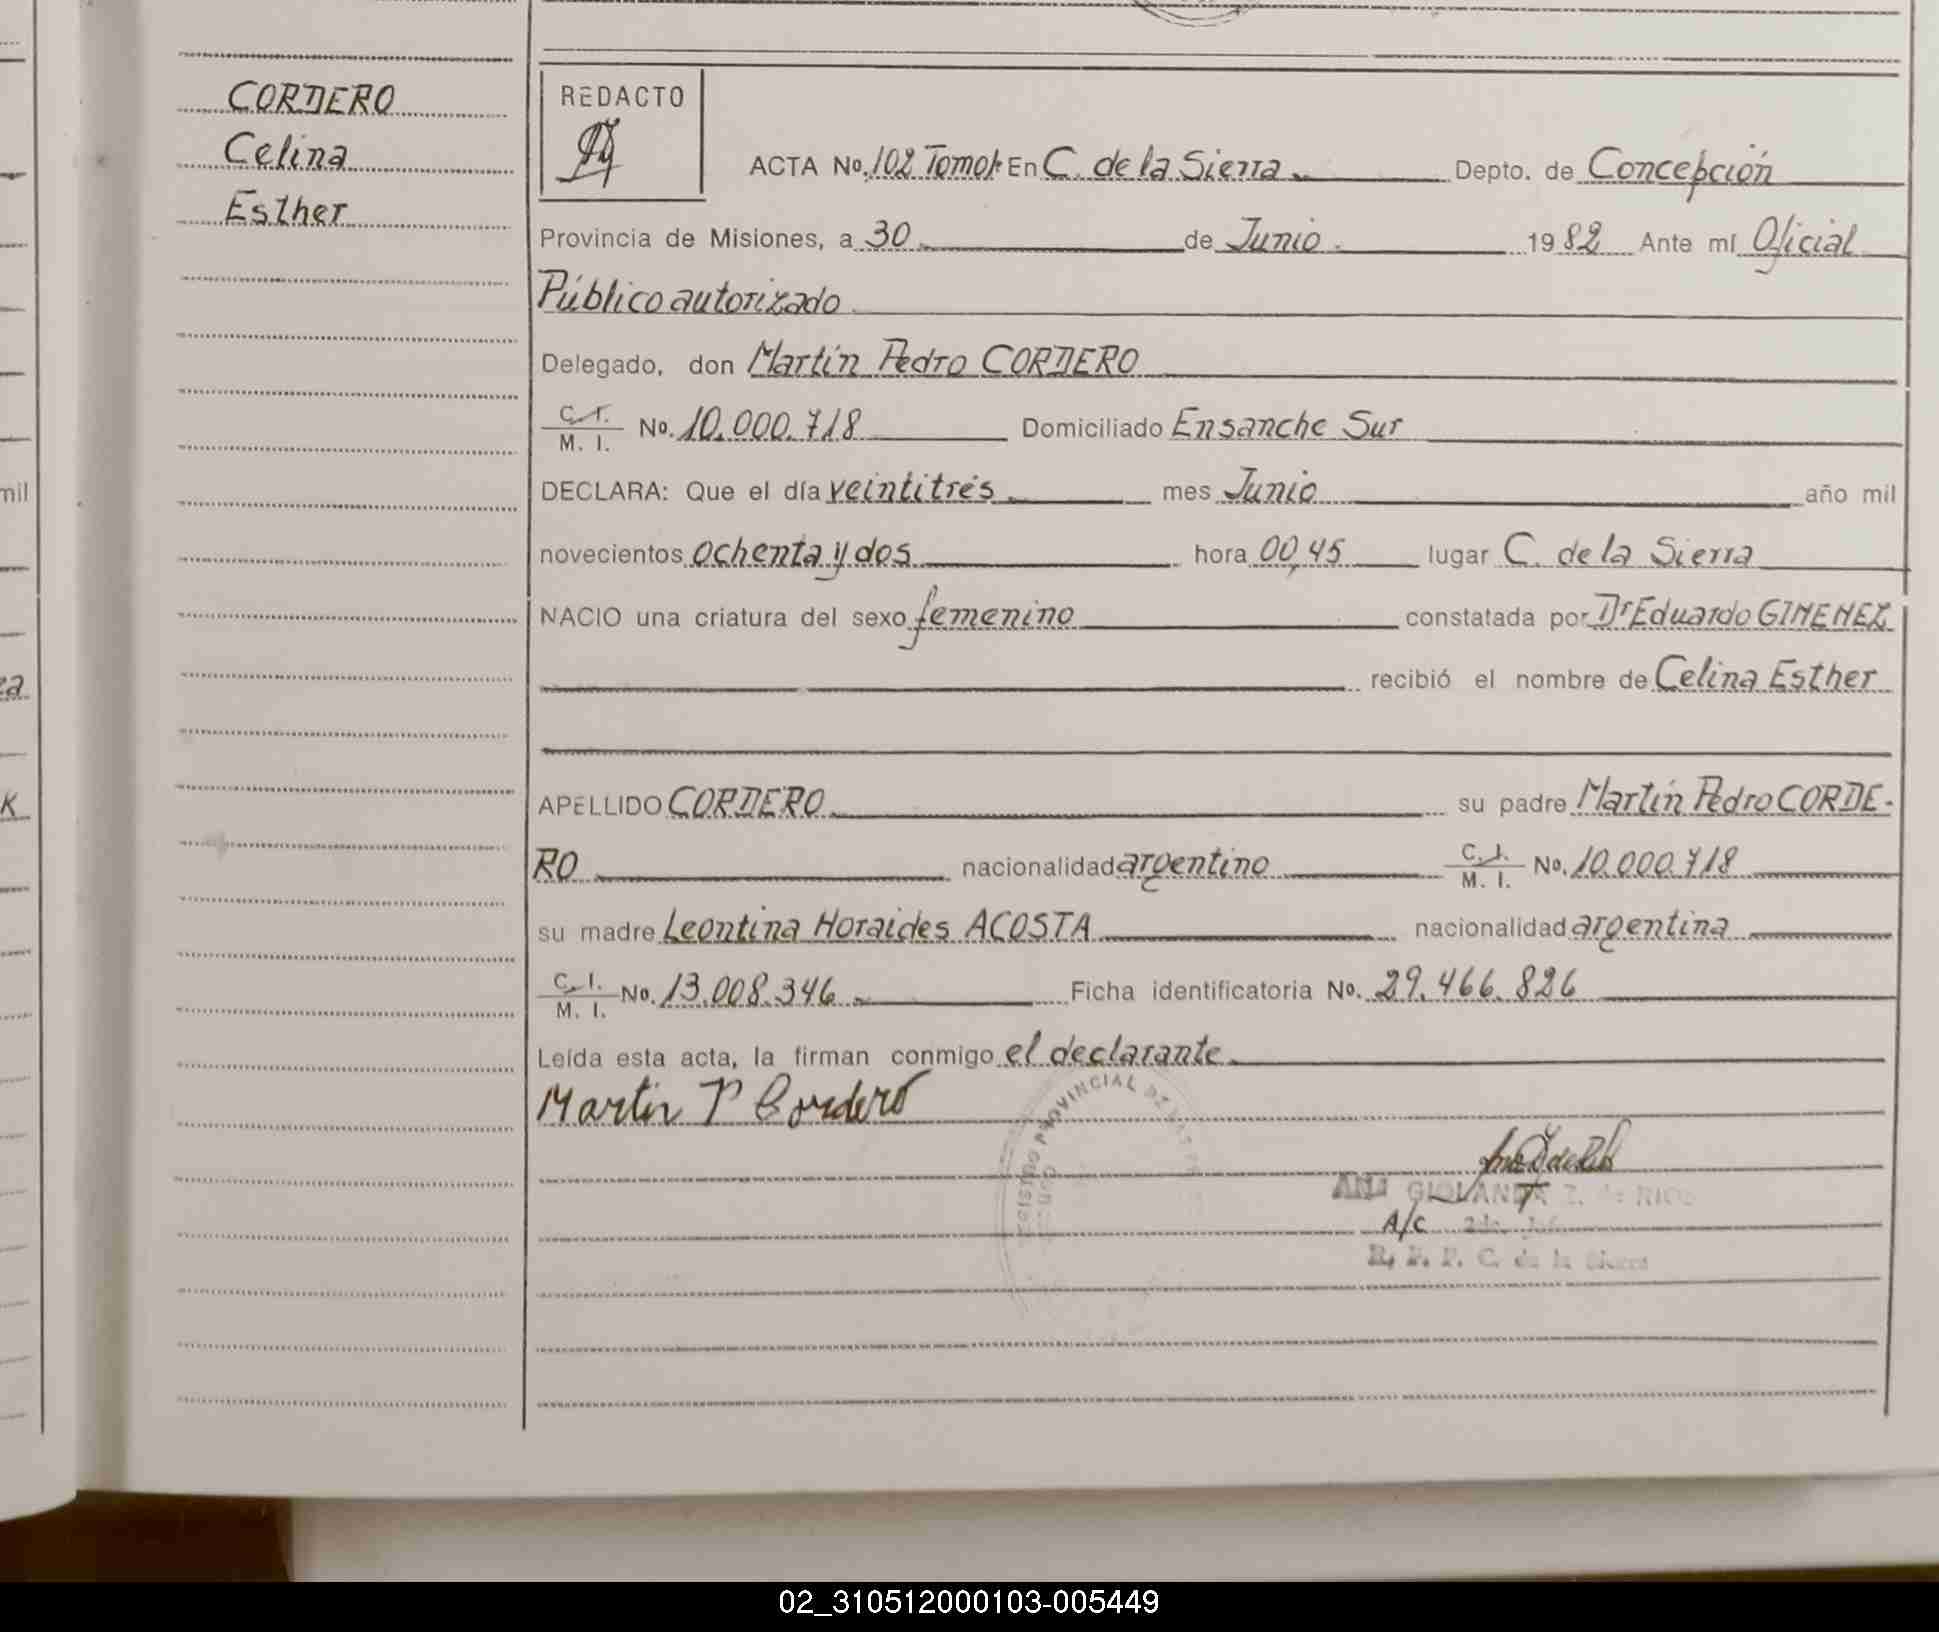 mil
za
K
CORDERO
Celina
Esther
REDACTO
ACTA No. 102 Tomo I En C. de la Sierra Depto. de Concepción
Provincia de Misiones, a 30 de Junio 1982 Ante mí Oficial
Público autorizado
Delegado, don Martín Pedro CORDERO
C. I.
M. I. No. 10.000.718 Domiciliado Ensanche Sur
DECLARA: Que el día veintitrés mes Junio año mil
novecientos ochenta y dos hora 00,45 lugar C. de la Sierra
NACIO una criatura del sexo femenino constatada por Dr Eduardo GIMENEZ
recibió el nombre de Celina Esther
APELLIDO CORDERO su padre Martín Pedro CORDE-
RO nacionalidad argentino C. I. M. I. No. 10.000.718
su madre Leontina Horaides ACOSTA nacionalidad argentina
C. I. M. I. No. 13.008.346 Ficha identificatoria No. 29.466.826
Leída esta acta, la firman conmigo el declarante
Martin P Cordero
REGISTRO PROVINCIAL DE LAS
ANA GIOLANDA Z. de RIOS
A/c
R. P. P. C. de la Sierra
02_310512000103-005449